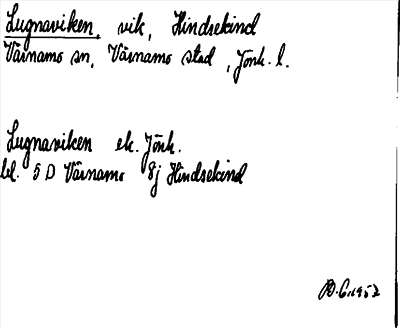 Lugnaviken, vik, Hindsekind
Värnamo sn, Värnamo stad, Jönk. l.
Lugnaviken ek. Jönk.
bl. 5 D Värnamo 8j Hindsekind
1952